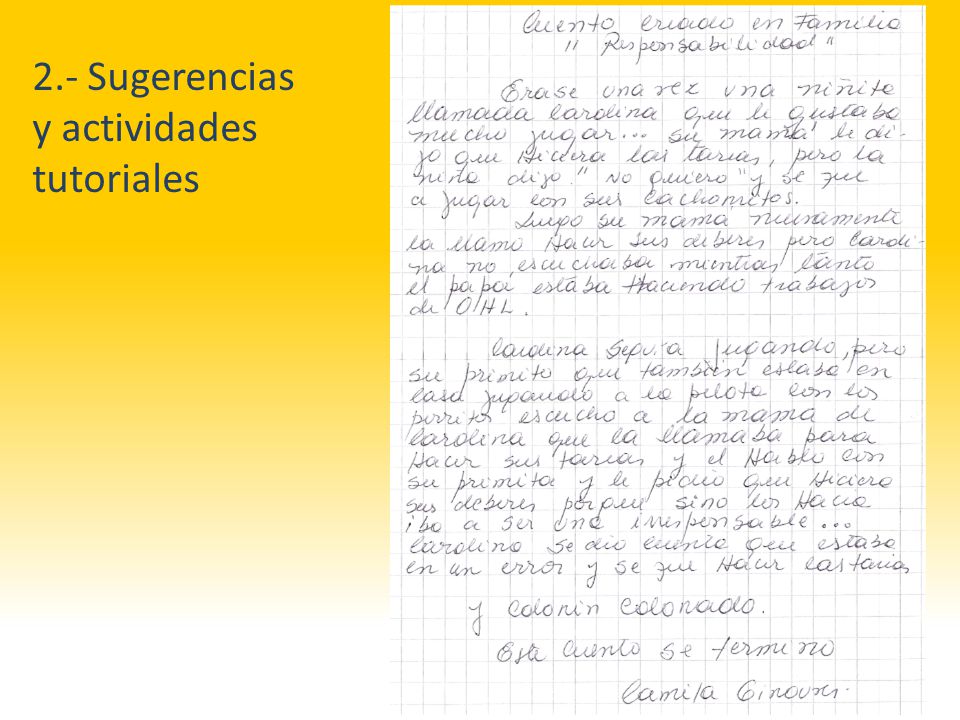 2.- Sugerencias
y actividades
tutoriales
Cuento criado en Familia
" Responsabilidad"
Erase una vez una niñita
llamada Carolina que le gustaba
mucho jugar... su mamá le di-
jo que Hiciera las tarias, pero la
niña dijo." No quiero" y se fue
a jugar con sus cachorritos.
Luego su mama nuevamente
la llamo Hacer sus deberes pero Caroli-
na no, escuchaba mientras tanto
el papá estaba Haciendo trabajos
de OHL.
Carolina Seguía jugando, pero
su primito que también estaba en
casa jugando a la pilota con los
perritos escucho a la mama de
Carolina que la llamaba para
Hacer sus tarias y el Hablo con
su primita y le pidio que Hiciera
sus deberes porque sino los Hacia
iba a ser una irresponsable...
Carolina se dio cuenta que estaba
en un error y se fue Hacer las tarias
y Colorin Colorado.
Este Cuento se termino
Camila